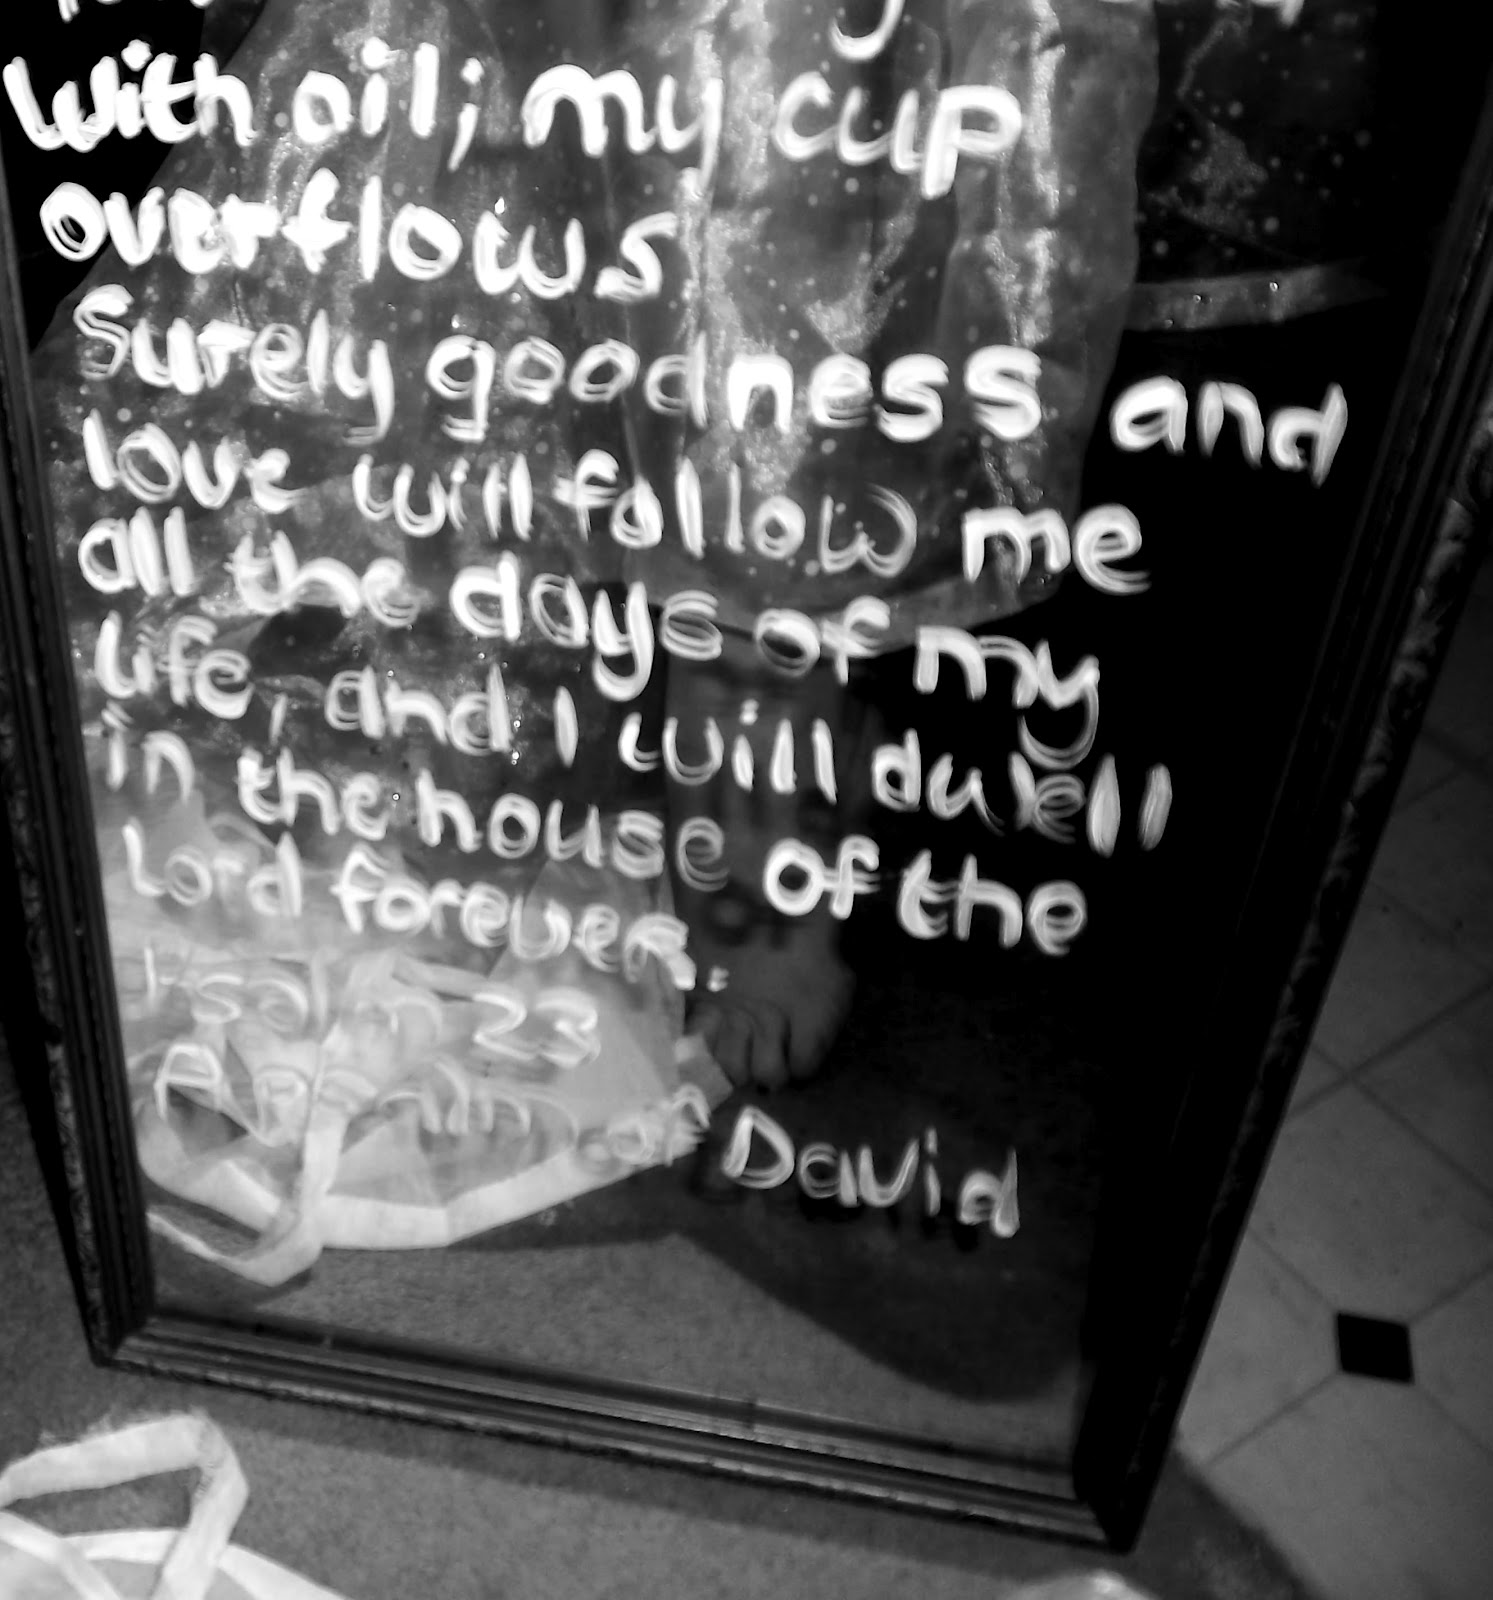 with oil; my cup
overflows
Surely goodness and
love will follow me
all the days of my
life, and I will dwell
in the house of the
Lord forever.
Psalm 23
A Psalm of David